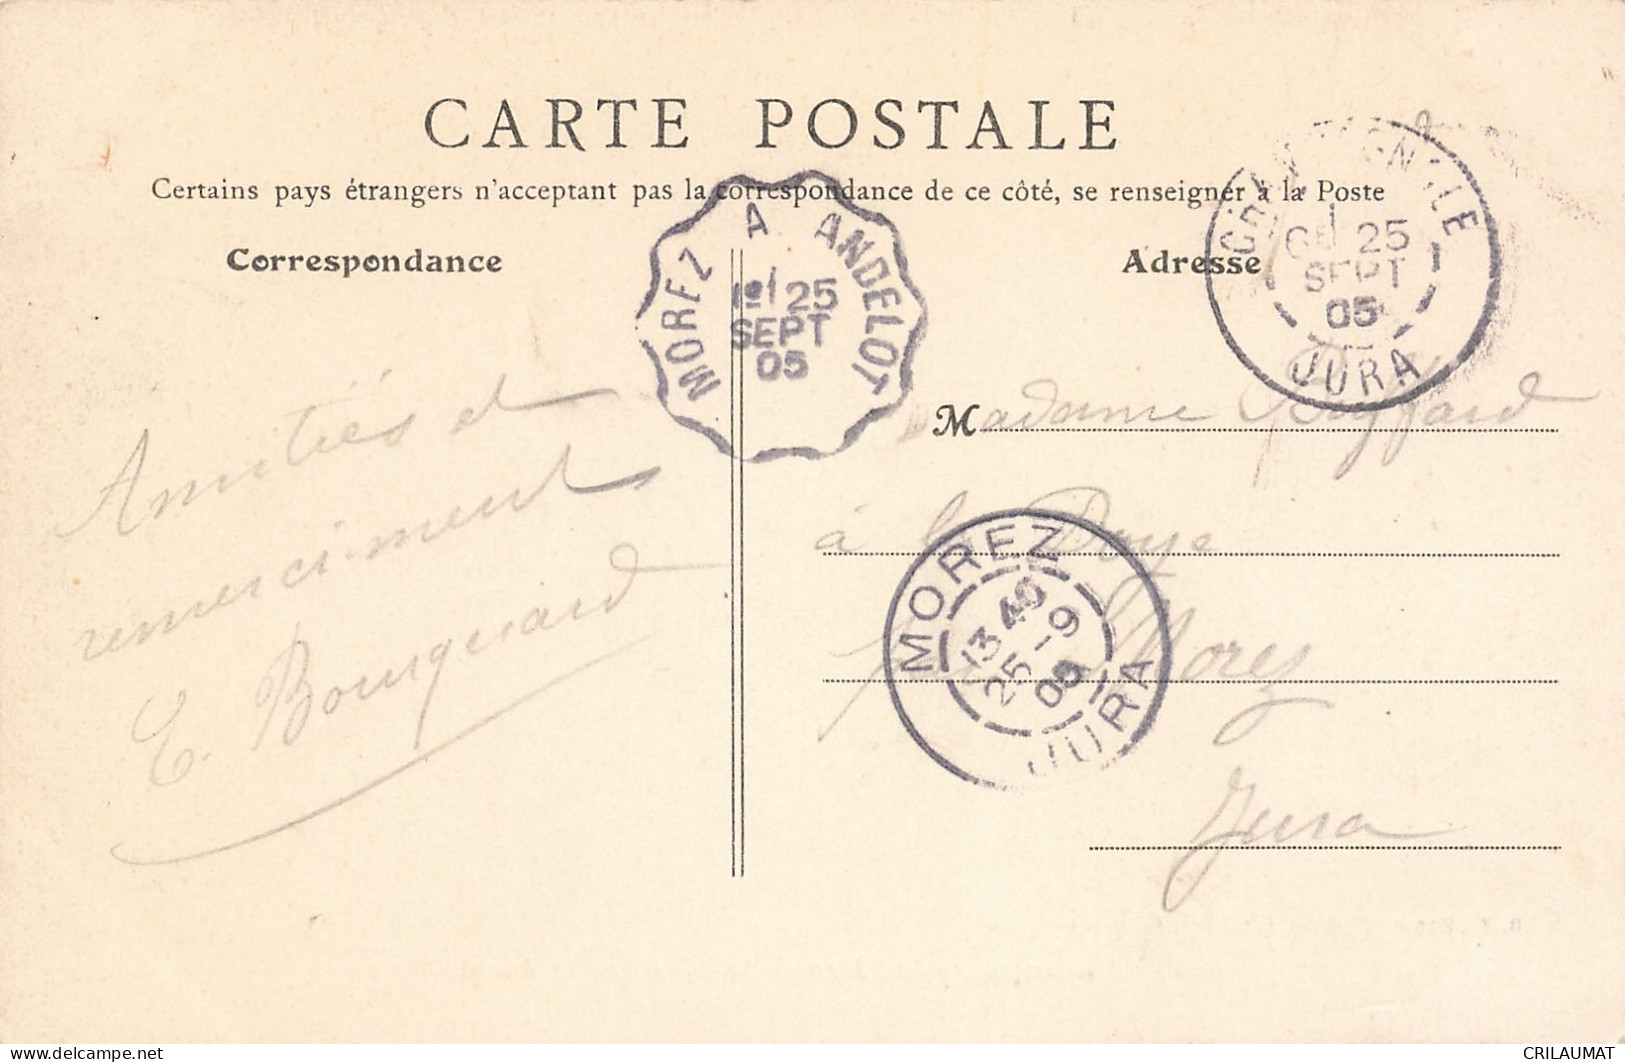 CARTE POSTALE
Certains pays étrangers n'acceptant pas la correspondance de ce côté, se renseigner à la Poste
Correspondance
Adresse
MOREZ A ANDELOT
1º 25
SEPT
05
25
SEPT
05
JURA
Amitiés et
remerciment
E. Bourgeard
Madame
à la Doye
Morez
Jura
MOREZ
13 40
25 - 9
05
JURA
CRILAUMAT